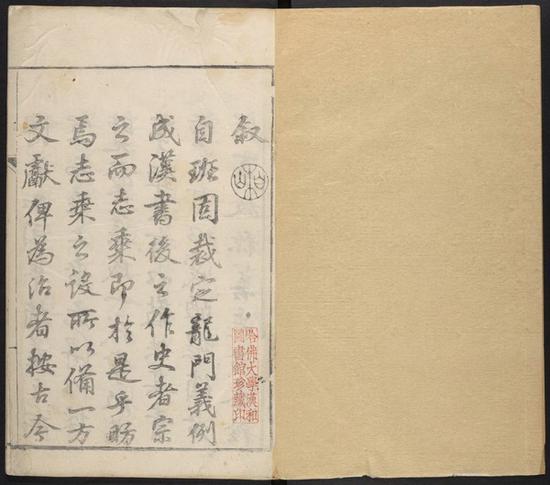 叙
自班固裁定龍門義例
成漢書後之作史者宗
之而志乘即於是乎昉
焉志乘之設所以備一方
文獻俾為治者按古今
哈佛大學漢和
圖書館珍藏印